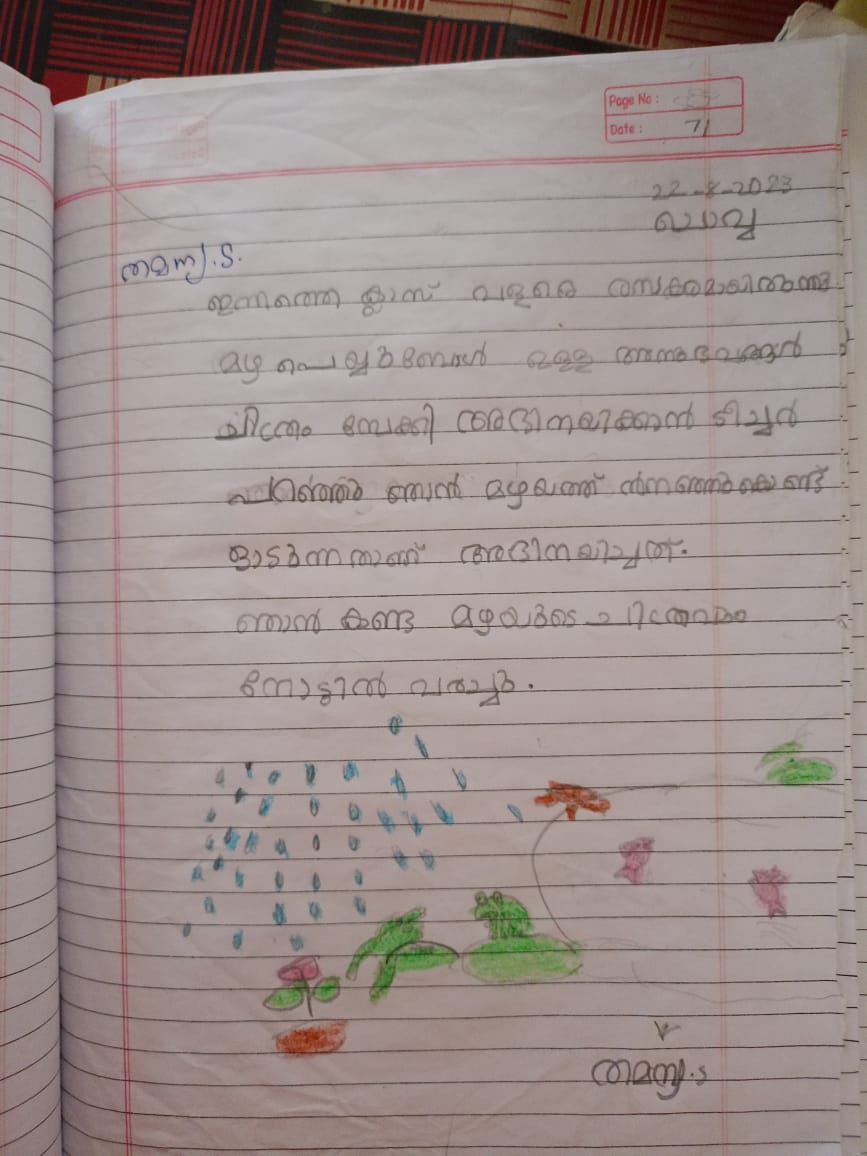 Page No :
Date : 7/
22-8-2023
ചൊവ്വ
തമന്യ.S.
ഇന്നത്തെ ക്ലാസ് വളരെ രസകരമായിരുന്നു
മഴ പെയ്യുമ്പോൾ ഉള്ള അനുഭവങ്ങൾ
ചിത്രം നോക്കി അഭിനയിക്കാൻ ടീച്ചർ
പറഞ്ഞു ഞാൻ മഴയത്ത് നനഞ്ഞുകൊണ്ട്
ഓടുന്നതാണ് അഭിനയിച്ചത്.
ഞാൻ കണ്ട മഴയുടെ ചിത്രവും
നോട്ടിൽ വരച്ചു.
തമന്യ.s